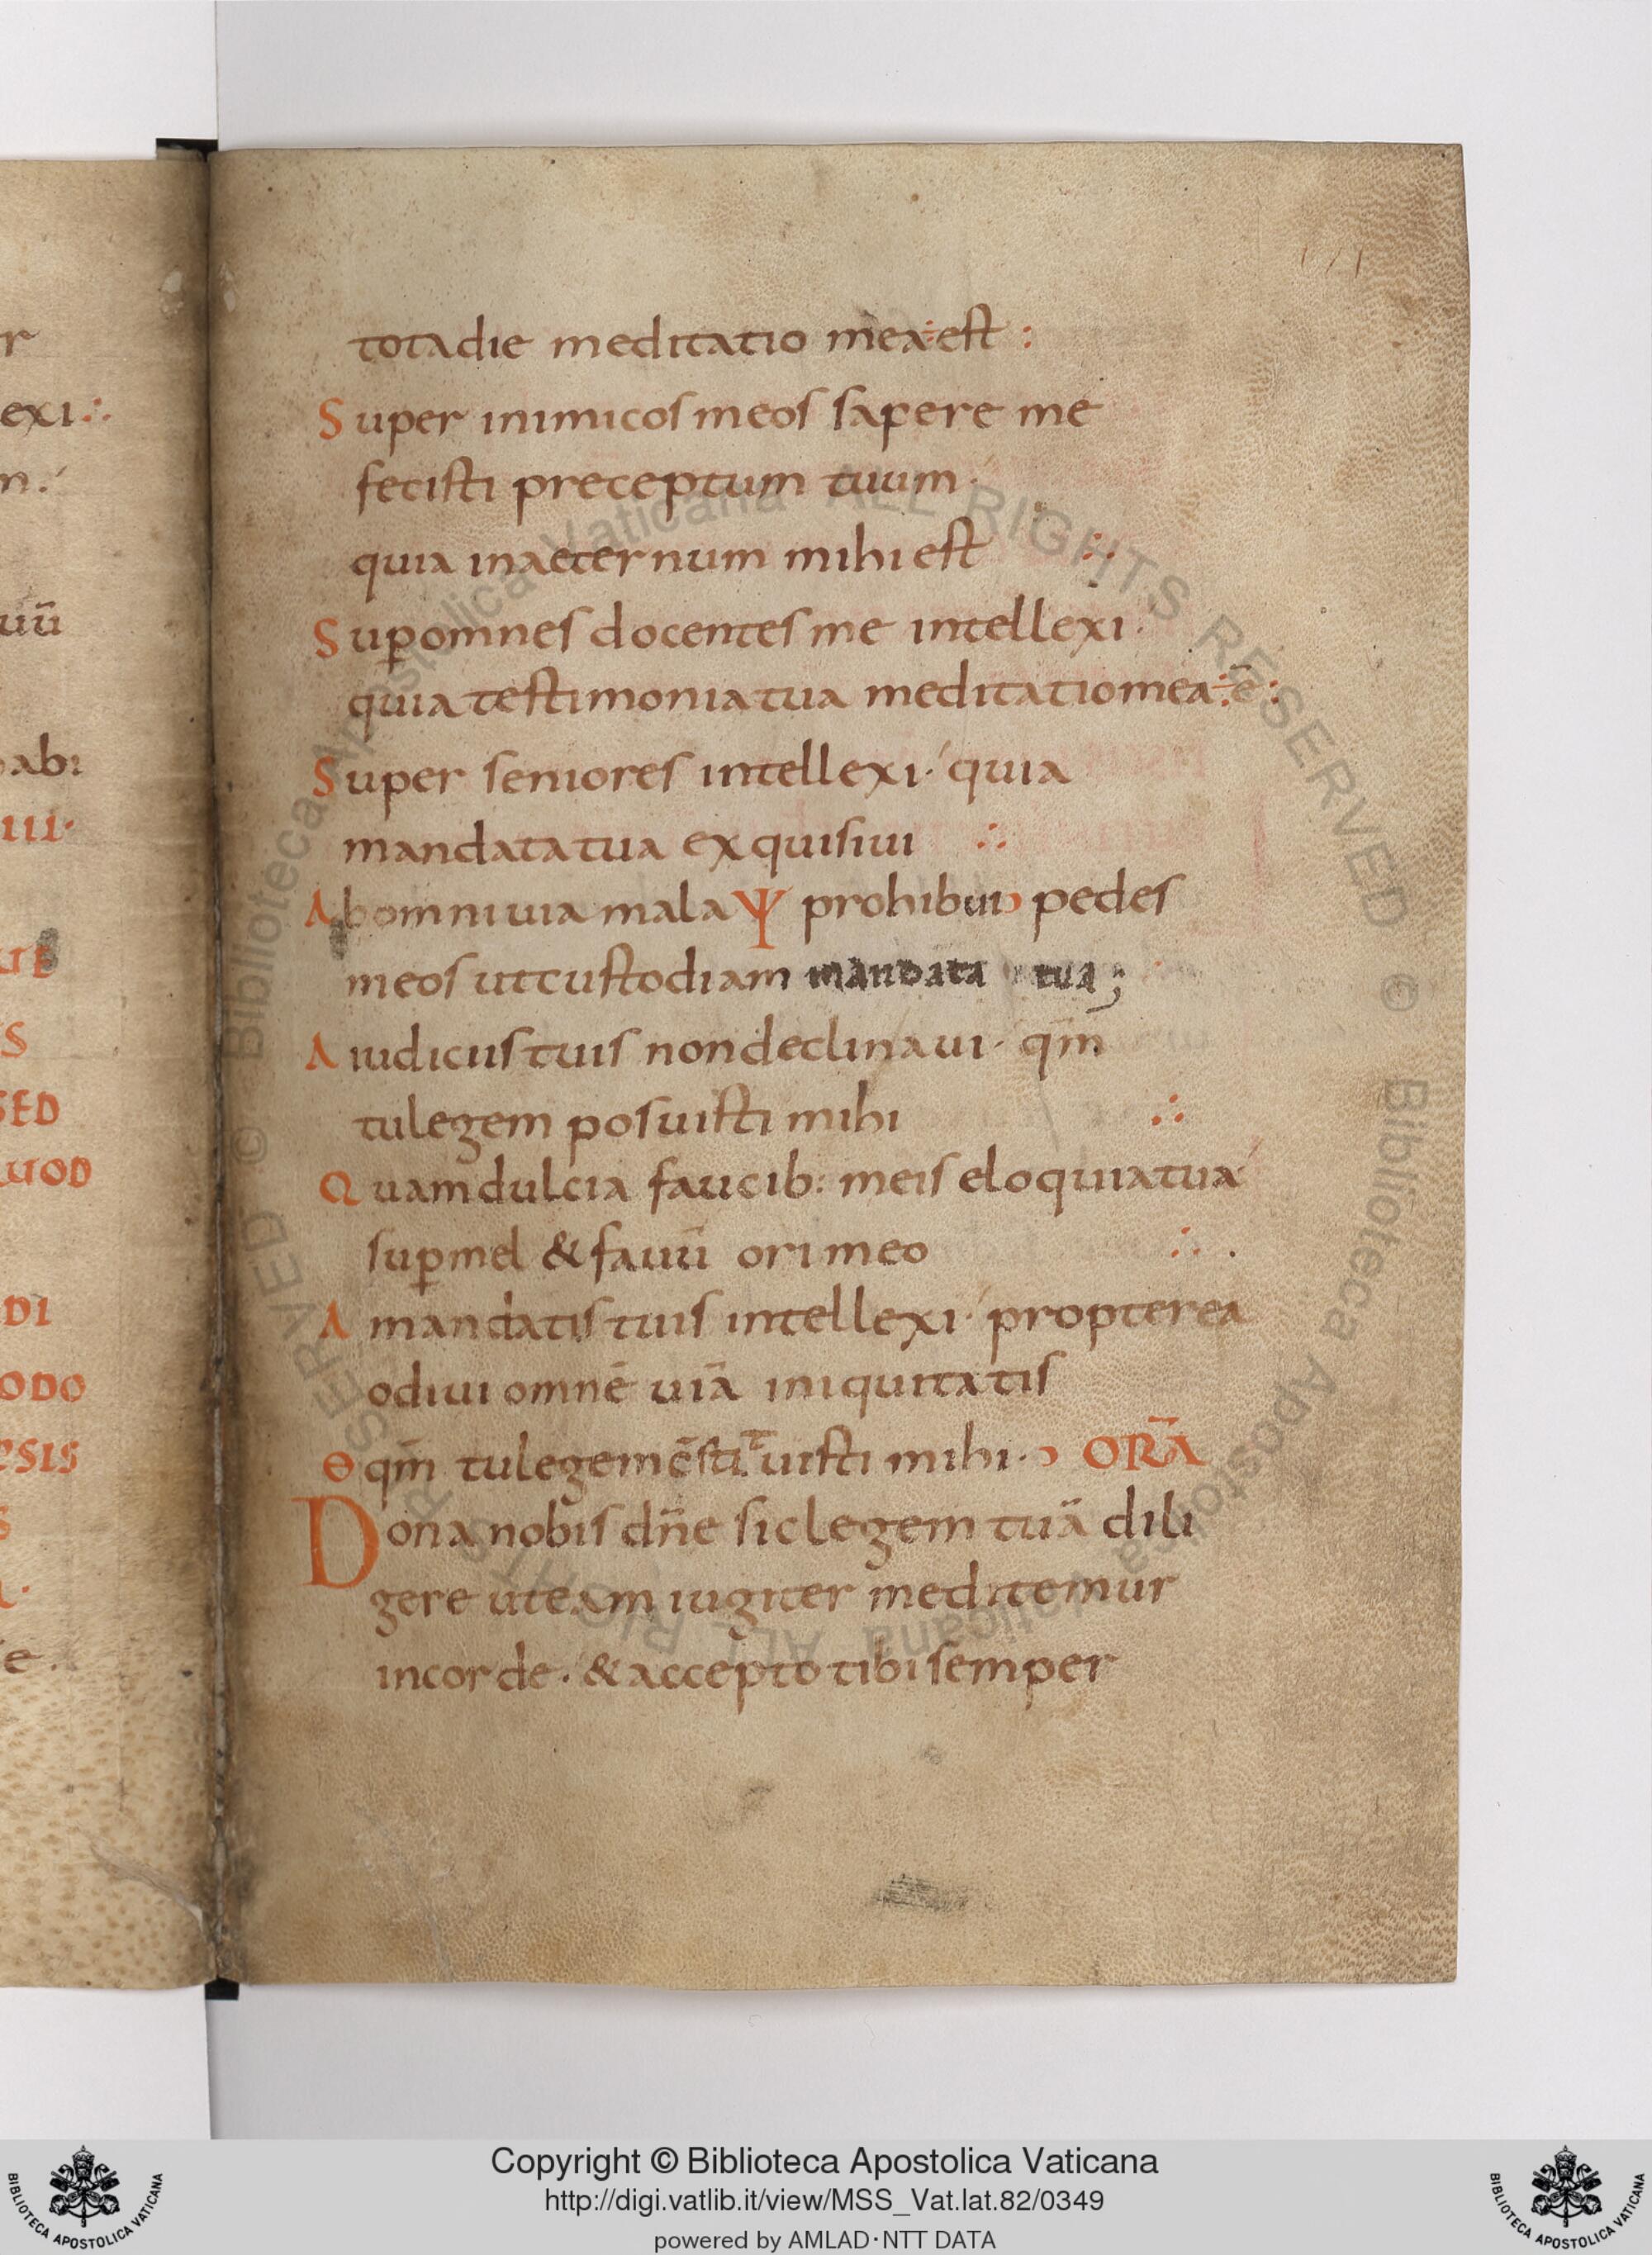 r
exi∴
n.
uū
abi
iii·
S
SED
UOD
DI
ODO
ESIS
e.
171
tota die meditatio mea est :
Super inimicos meos sapere me
fecisti preceptum tuum·
quia in aeternum mihi est ∴
Sup̱ omnes docentes me intellexi·
quia testimonia tua meditatio mea ē :
Super seniores intellexi· quia
mandata tua exquisiui ∴
Ab omni uia mala Ψ prohibui pedes
meos ut custodiam mandata tua;
A iudiciis tuis non declinaui· qm̄
tu legem posuisti mihi ∴
Quam dulcia faucib: meis eloquia tua
sup̱ mel & fauū ori meo ∴
A mandatis tuis intellexi· propterea
odiui omnē uiā iniquitatis
qm̄ tu legem uisti mihi· ORĀ
Dona nobis dn̄e sic legem tuā dili
gere ut eam iugiter meditemur
in corde· & accepto tibi semper
Copyright © Biblioteca Apostolica Vaticana
http://digi.vatlib.it/view/MSS_Vat.lat.82/0349
powered by AMLAD·NTT DATA
BIBLIOTECA APOSTOLICA VATICANA
BIBLIOTECA APOSTOLICA VATICANA
© Biblioteca Apostolica Vaticana ALL RIGHTS RESERVED © Biblioteca Apostolica Vaticana ALL RIGHTS RESERVED